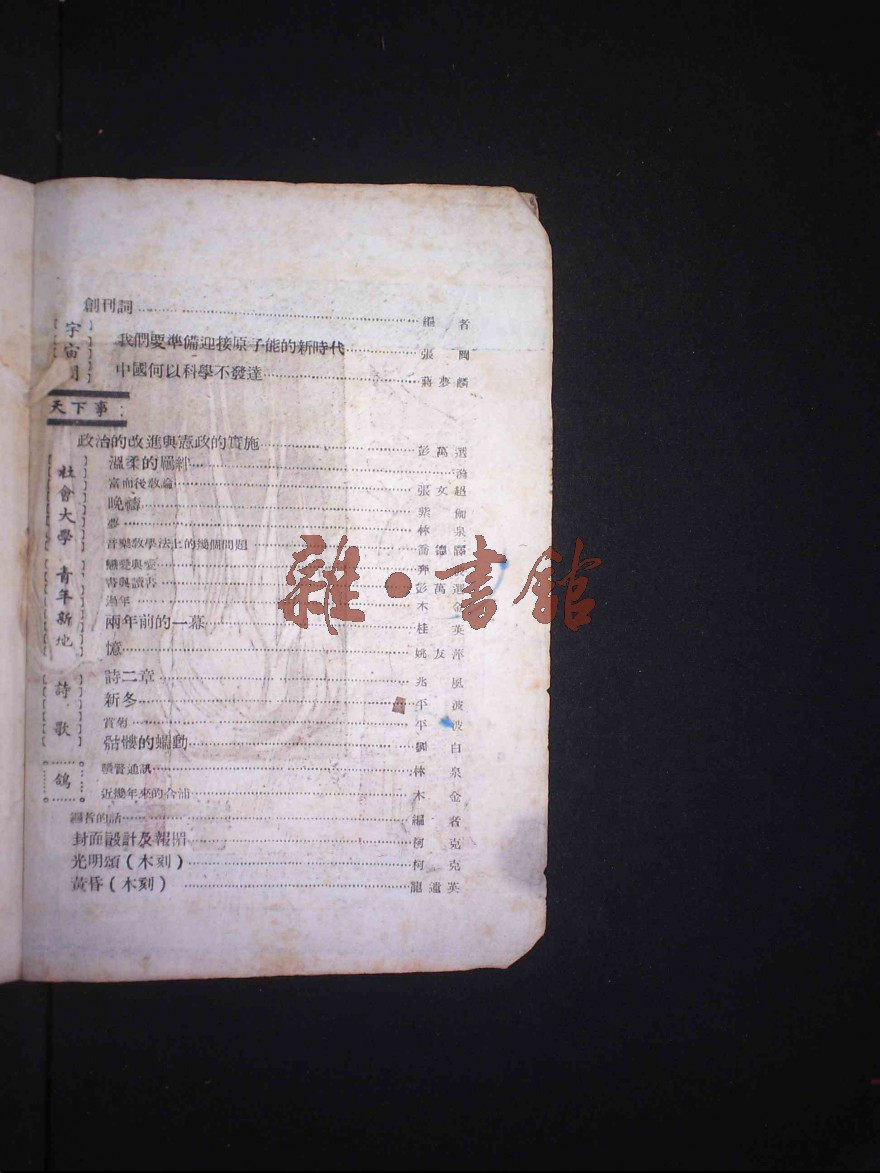 創刊詞 編者
宇宙間
我們要準備迎接原子能的新時代 張
中國何以科學不發達 蔣夢麟
天下事
政治的改進與憲政的實施 彭萬選
社會大學
溫柔的羈絆
富而後教論 張文超
晚禱 紫
夢 林泉
音樂教學法上的幾個問題 喬德
戀愛與愛
書與讀書 彭萬選
過年 木金
青年新地
兩年前的一幕 桂英
憶 姚友萍
詩歌
詩二章 兆風
新冬 平波
賞菊 平波
骷髏的蠕動 劉白
鴿
通訊 林泉
近幾年來的合浦 木金
編者的話 編者
封面設計及報楣 柯克
光明頌(木刻) 柯克
黃昏(木刻) 龍廬英
雜·書館